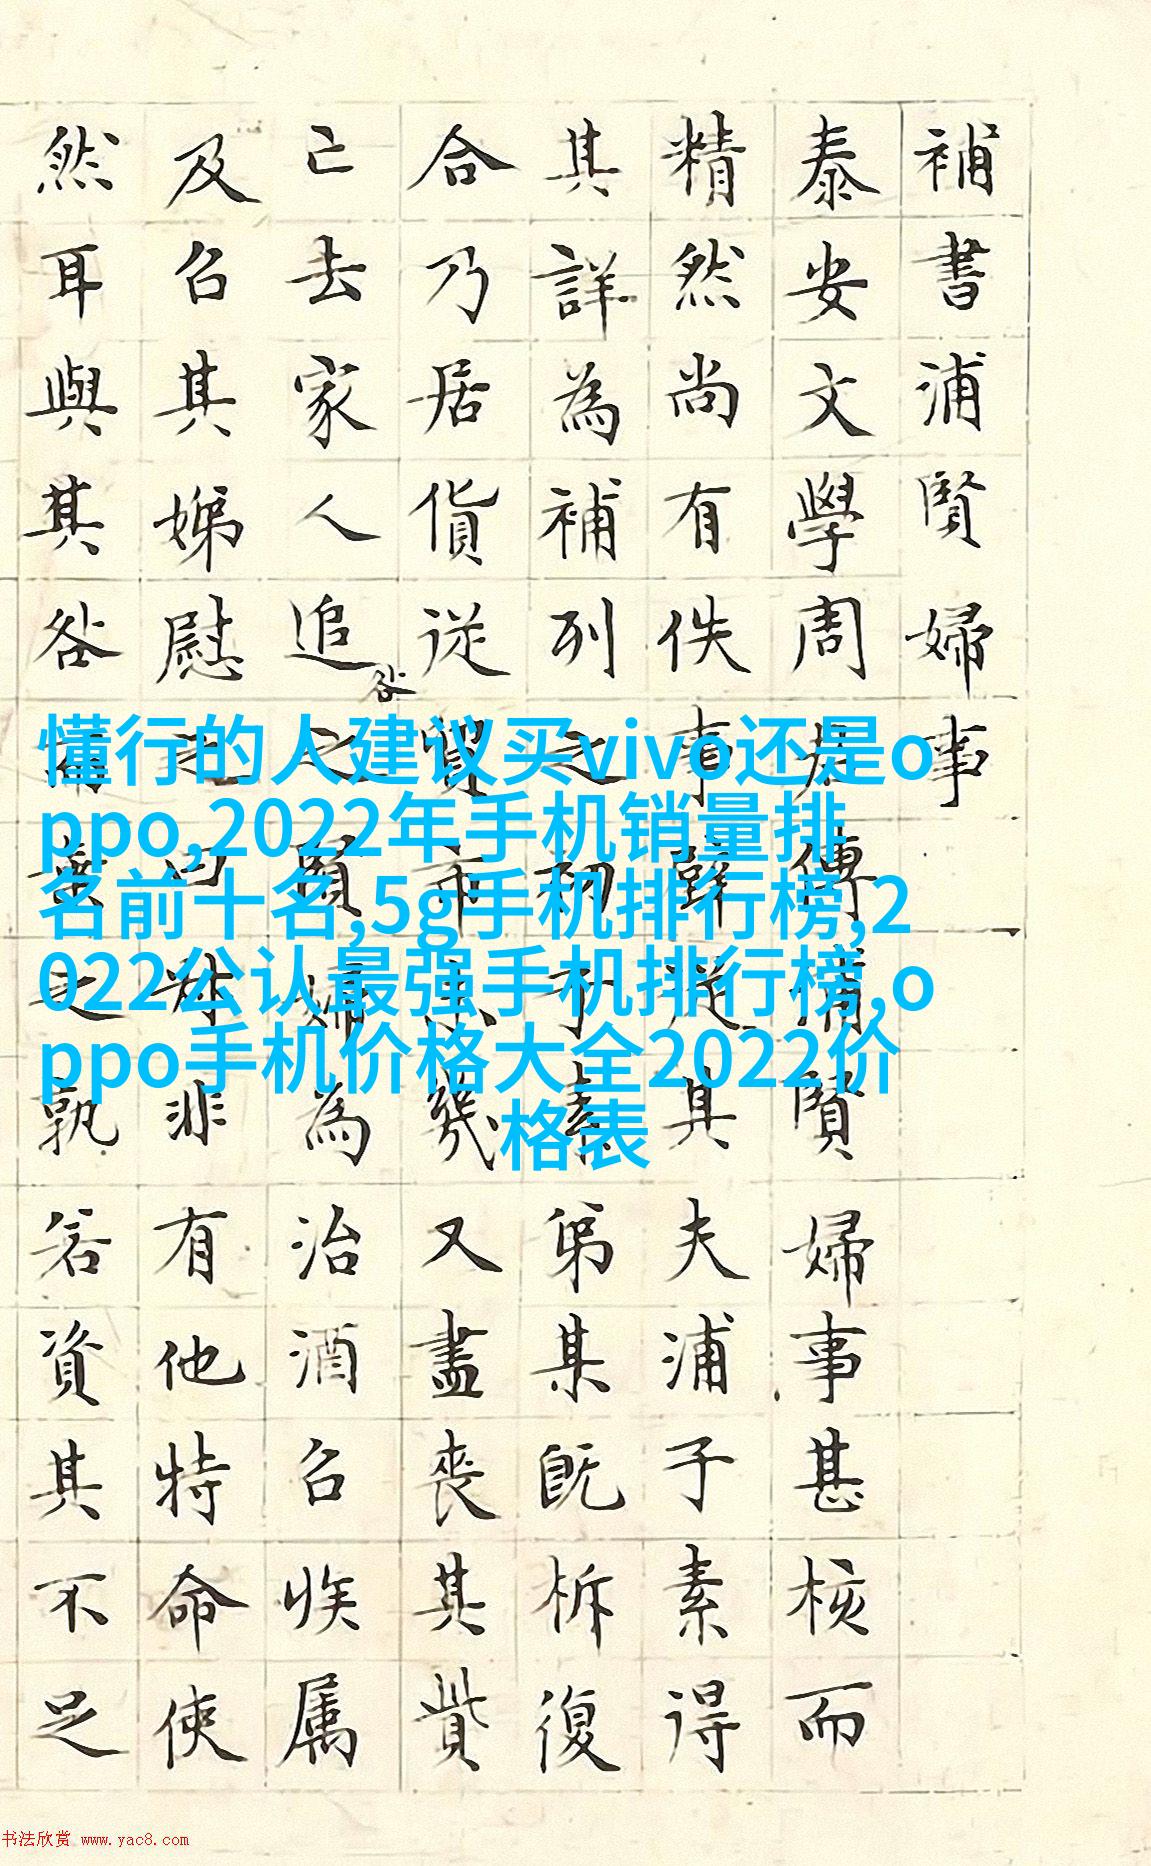 補書浦賢婦事
泰安文學周君傳浦賢婦事甚核而
精然尚有佚事其夫浦子素得
其詳為補列之初子素弟某既析復
合乃居貨從賈市幾又盡喪其貲
亡去家人追咎之賢婦為治酒召族属
及召其娣慰之曰非有他特命使
然耳與其咎之孰若資其不足
懂行的人建议买vivo还是o
ppo,2022年手机销量排
名前十名,5g手机排行榜,2
022公认最强手机排行榜,o
ppo手机价格大全2022价
格表
书法欣赏 www.yac8.com